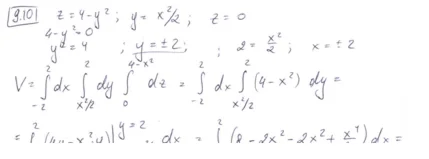 9.10 z = 4 - y² ; y = x²/2 ; z = 0
4 - y² = 0
y² = 4 ; y = ± 2 ; 2 = x²/2 ; x = ± 2
V = ∫_{-2}^{2} dx ∫_{x²/2}^{2} dy ∫_{0}^{4-x²} dz = ∫_{-2}^{2} dx ∫_{x²/2}^{2} (4 - x²) dy =
= ∫^{2} (4y - x²y) |^{y=2} dx = ∫^{2} (8 - 2x² - 2x² + x⁴) dx =